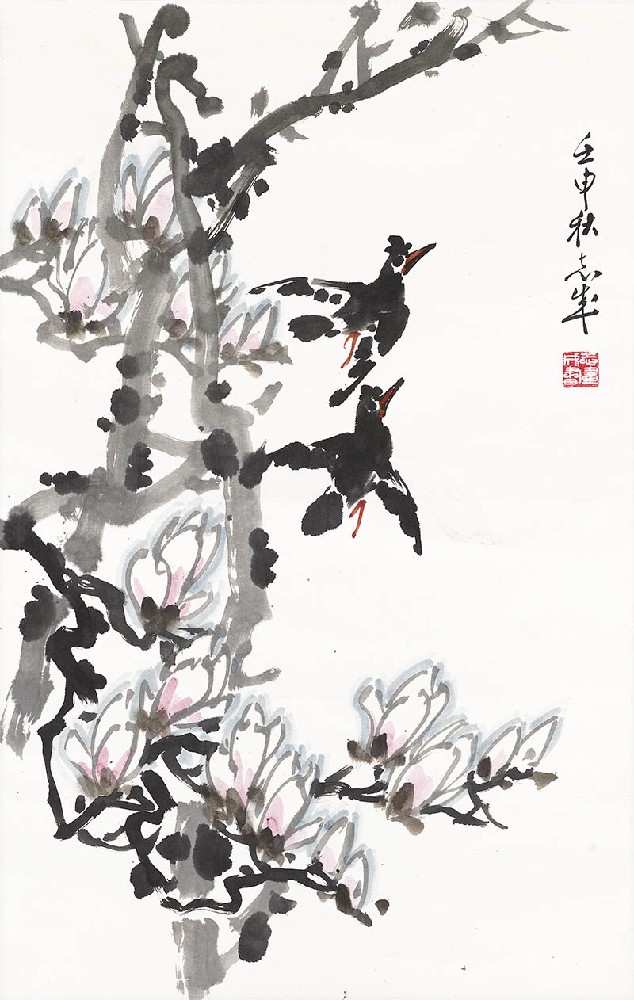 壬申秋志成